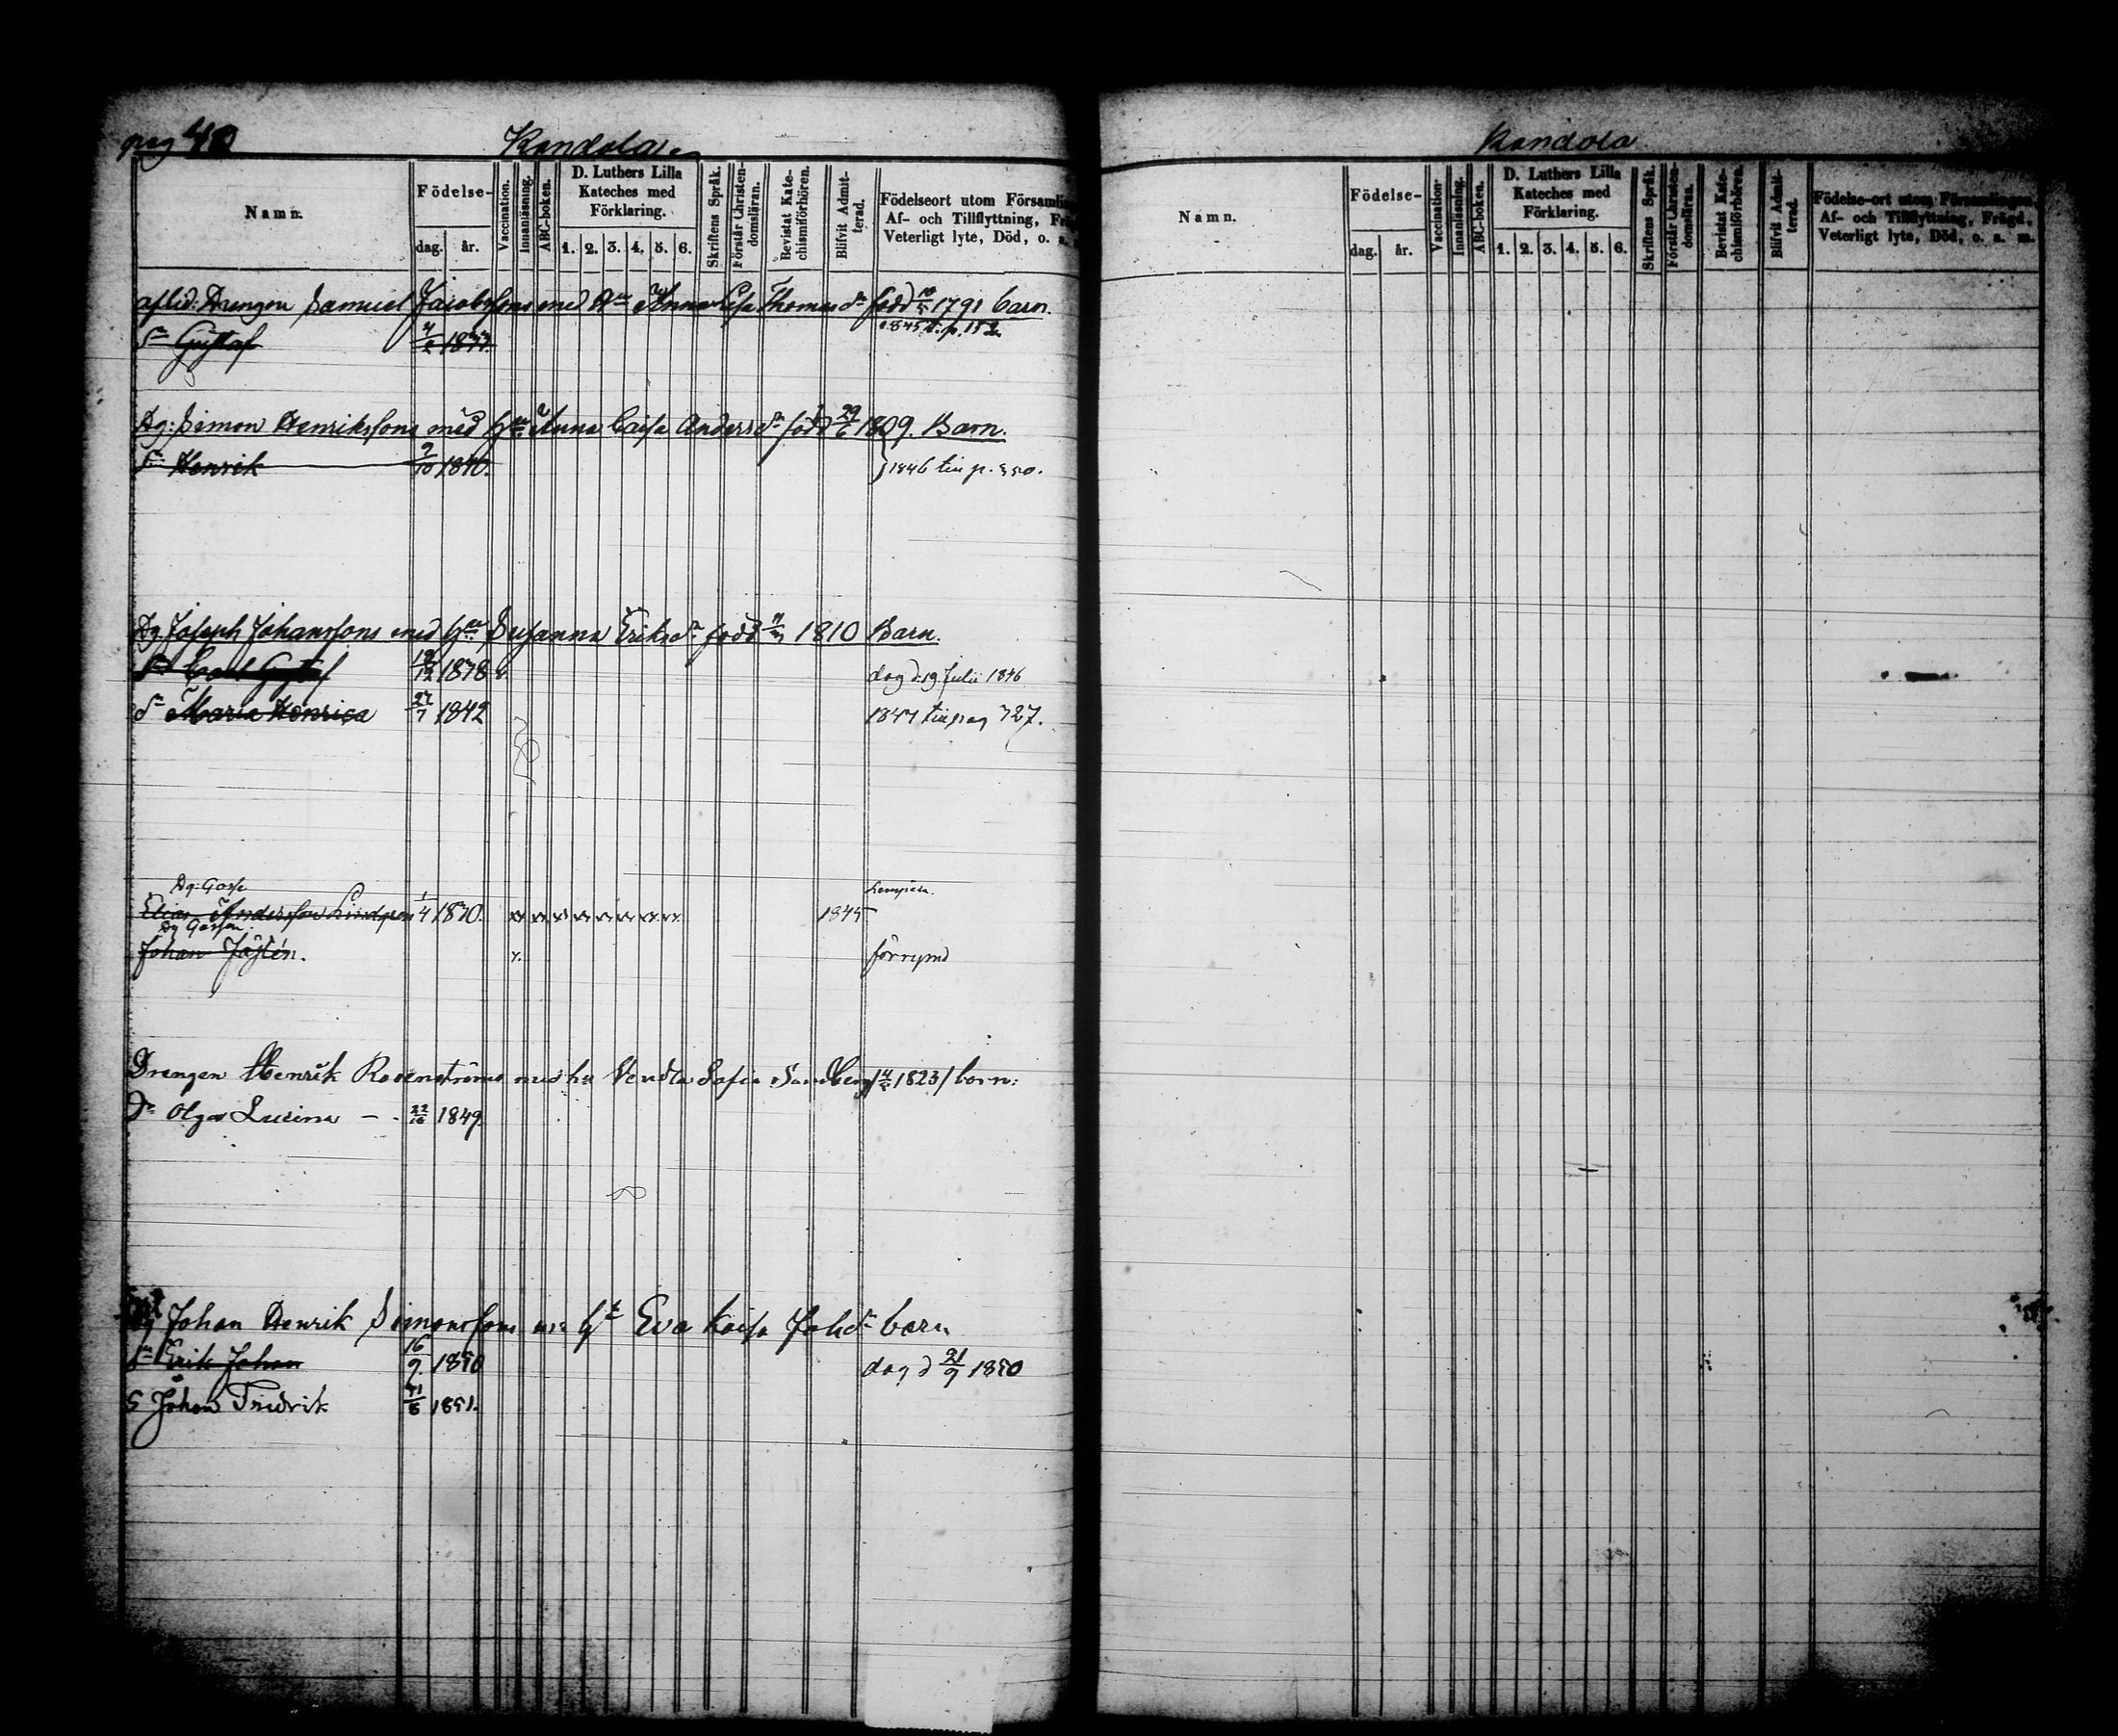 pag 40
Kandola
Namn.
Födelse-
dag. år.
Vaccination.
Innanläsning.
ABC-boken.
D. Luthers Lilla
Kateches med
Förklaring.
1. 2. 3. 4. 5. 6.
Skriftens Språk.
Förstår Christen-
domsläran.
Bevistat Kate-
chismiförhören.
Blifvit Admit-
terad.
Födelseort utom Församlin
Af- och Tillflyttning,
Veterligt lyte, Död, o. a.
aflid: Drengen Samuel Jacobssons med Anna Lisa Thomasdr född 1791 barn.
Sn Gustaf
1845 t. p. 152
Dg: Simon Henrikssons med Hu Anna Caisa Andersdr född 29/6 1809. Barn.
Sn Henrik 9/10 1840. 1846 till p. 350.
Dg Joseph Johanssons med Hu Susanna Eriksdr född 1810 Barn.
Sn Carl Gustaf 1838 v. dog d. 19 Julii 1846
Maria Henrica 27/7 1842 1847 till pag 327.
Dg: Gosse
Elias Andersson Lindgren 1/4 1830. 1845
Dg Gossen
Johan förrymd
Drengen Henrik Rosenströms med hu Vendla Sofia Sandberg 1823 / barn:
Dr Olga Lucina — 1849.
Dg Johan Henrik Simonssons Hu Eva Kaisa Johdr barn
Sn Erik Johan 16/9 1850 dog d 21/9 1850
S Johan Fridrik 1851.
Kandola
Namn.
Födelse-
dag. år.
Vaccination.
Innanläsning.
ABC-boken.
D. Luthers Lilla
Kateches med
Förklaring.
1. 2. 3. 4. 5. 6.
Skriftens Språk.
Förstår Christen-
domsläran.
Bevistat Kate-
chismiförhören.
Blifvit Admit-
terad.
Födelse-ort utom Församlingen,
Af- och Tillflyttning, Frägd,
Veterligt lyte, Död, o. a. m.